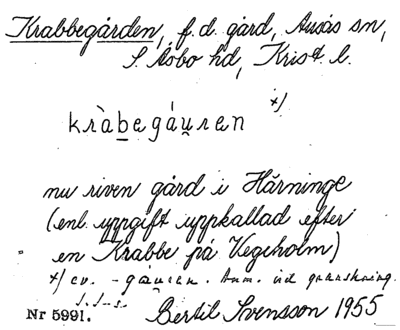 Krabbegården, f.d. gård, Ausås sn,
S. Åsbo hd, Krist l.
x/
kràb̲egáu̲ren
nu riven gård i Härninge
(enl. uppgift uppkallad efter
en Krabbe på Vegeholm)
x/ ev. -gáu̲ren. Anm. vid granskning.
S.S-s.
Nr 5991. Bertil Svensson 1955